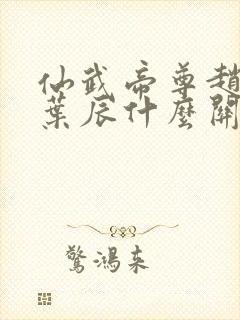 仙武帝尊趙
葉辰什麼關
驚鴻來